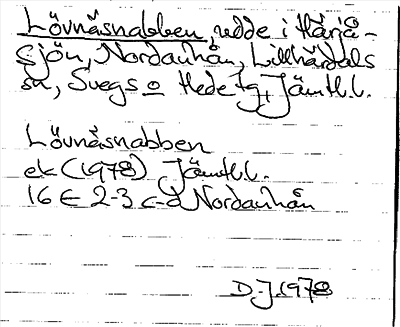 Lövnäsnabben, udde i Härjå-
sjön, Nordanhån, Lillhärdals
sn, Svegs o Hede tg, Jämtl.l.
Lövnäsnabben
ek (1978) Jämtl.l.
16 E 2-3 c-d Nordanhån
D.J. 1978